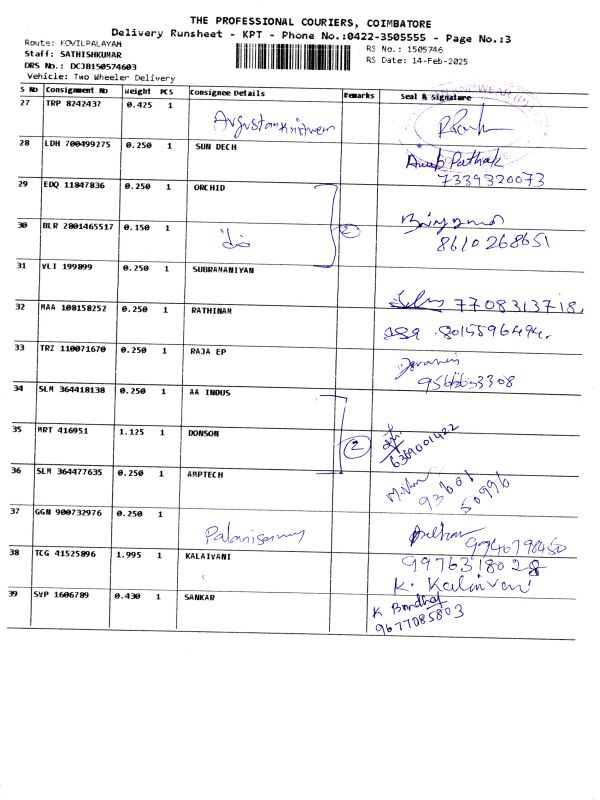 THE PROFESSIONAL COURIERS, COIMBATORE
Delivery Runsheet - KPT - Phone No.:0422-3505555 - Page No.:3
Route: KOVILPALAYAM
Staff: SATHISHKUMAR
DRS No.: DCJB150574603
Vehicle: Two Wheeler Delivery
RS No.: 1505746
RS Date: 14-Feb-2025
S No Consignment No Weight PCS Consignee Details Remarks Seal & Signature
27 TRP 8242437 0.425 1
28 LDH 700499275 0.250 1 SUN DECH Anub Pathak
7339320073
29 EDQ 11847836 0.250 1 ORCHID
30 BLR 2801465517 0.150 1 2 8610268651
31 VLI 199899 0.250 1 SUBRAMANIYAN
7708313718.
32 MAA 108158252 0.250 1 RATHINAM
8015596494.
33 TRZ 110071670 0.250 1 RAJA EP
34 SLM 364418138 0.250 1 AA INDUS
35 MRT 416951 1.125 1 DONSON 2 6369001422
36 SLM 364477635 0.250 1 AMPTECH
93601
50996
37 GGN 900732976 0.250 1 Palanisamy
9940798450
38 TCG 41525896 1.995 1 KALAIVANI 9976318028
K. Kalaivani
39 SVP 1606789 0.430 1 SANKAR K Bandhaj
9677085803